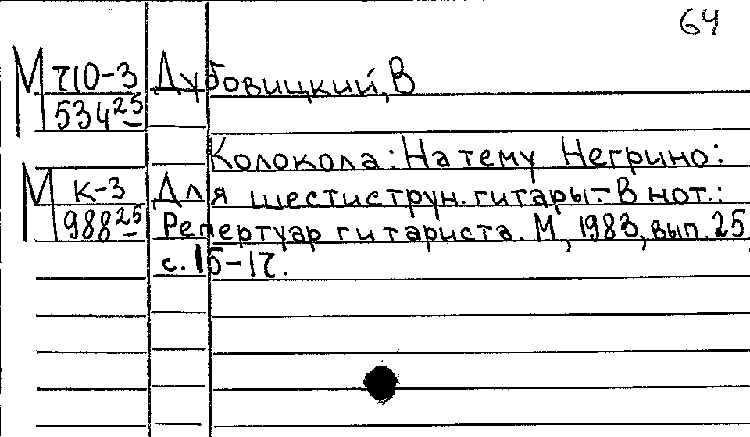 64
М 710-3 Дубовицкий, В
534 25
Колокола: На тему Негрино:
М К-3 Для шестиструн. гитары.- В нот.:
988 25 Репертуар гитариста. М, 1983, вып. 25,
с. 15-17.